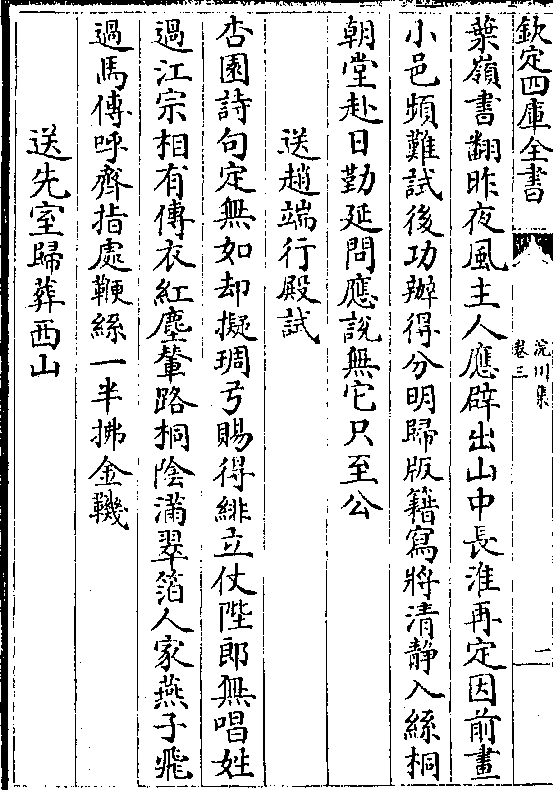 欽定四庫全書
浣川集
卷三
二
葉嶺書翻昨夜風主人應辟出山中長淮再定因前畫
小邑頻難試後功辦得分明歸版籍寫將清静入絲桐
朝堂赴日勤延問應說無它只至公
送趙端行殿試
杏園詩句定無如却擬琱弓賜得緋立仗陛郎無唱姓
過江宗相有傳衣紅塵輦路桐陰滿翠箔人家燕子飛
過馬傳呼齊指處鞭絲一半拂金鞿
送先室歸葬西山